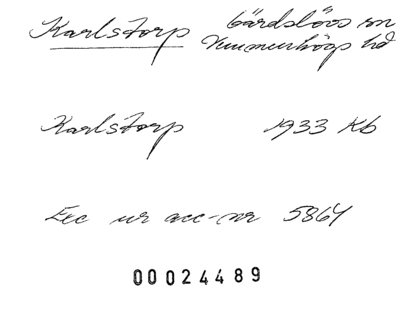 Karlstorp Gärdslövs sn
Vemmenhögs hd
Karlstorp 1933 Kb
Exc ur acc-nr 5864
00024489